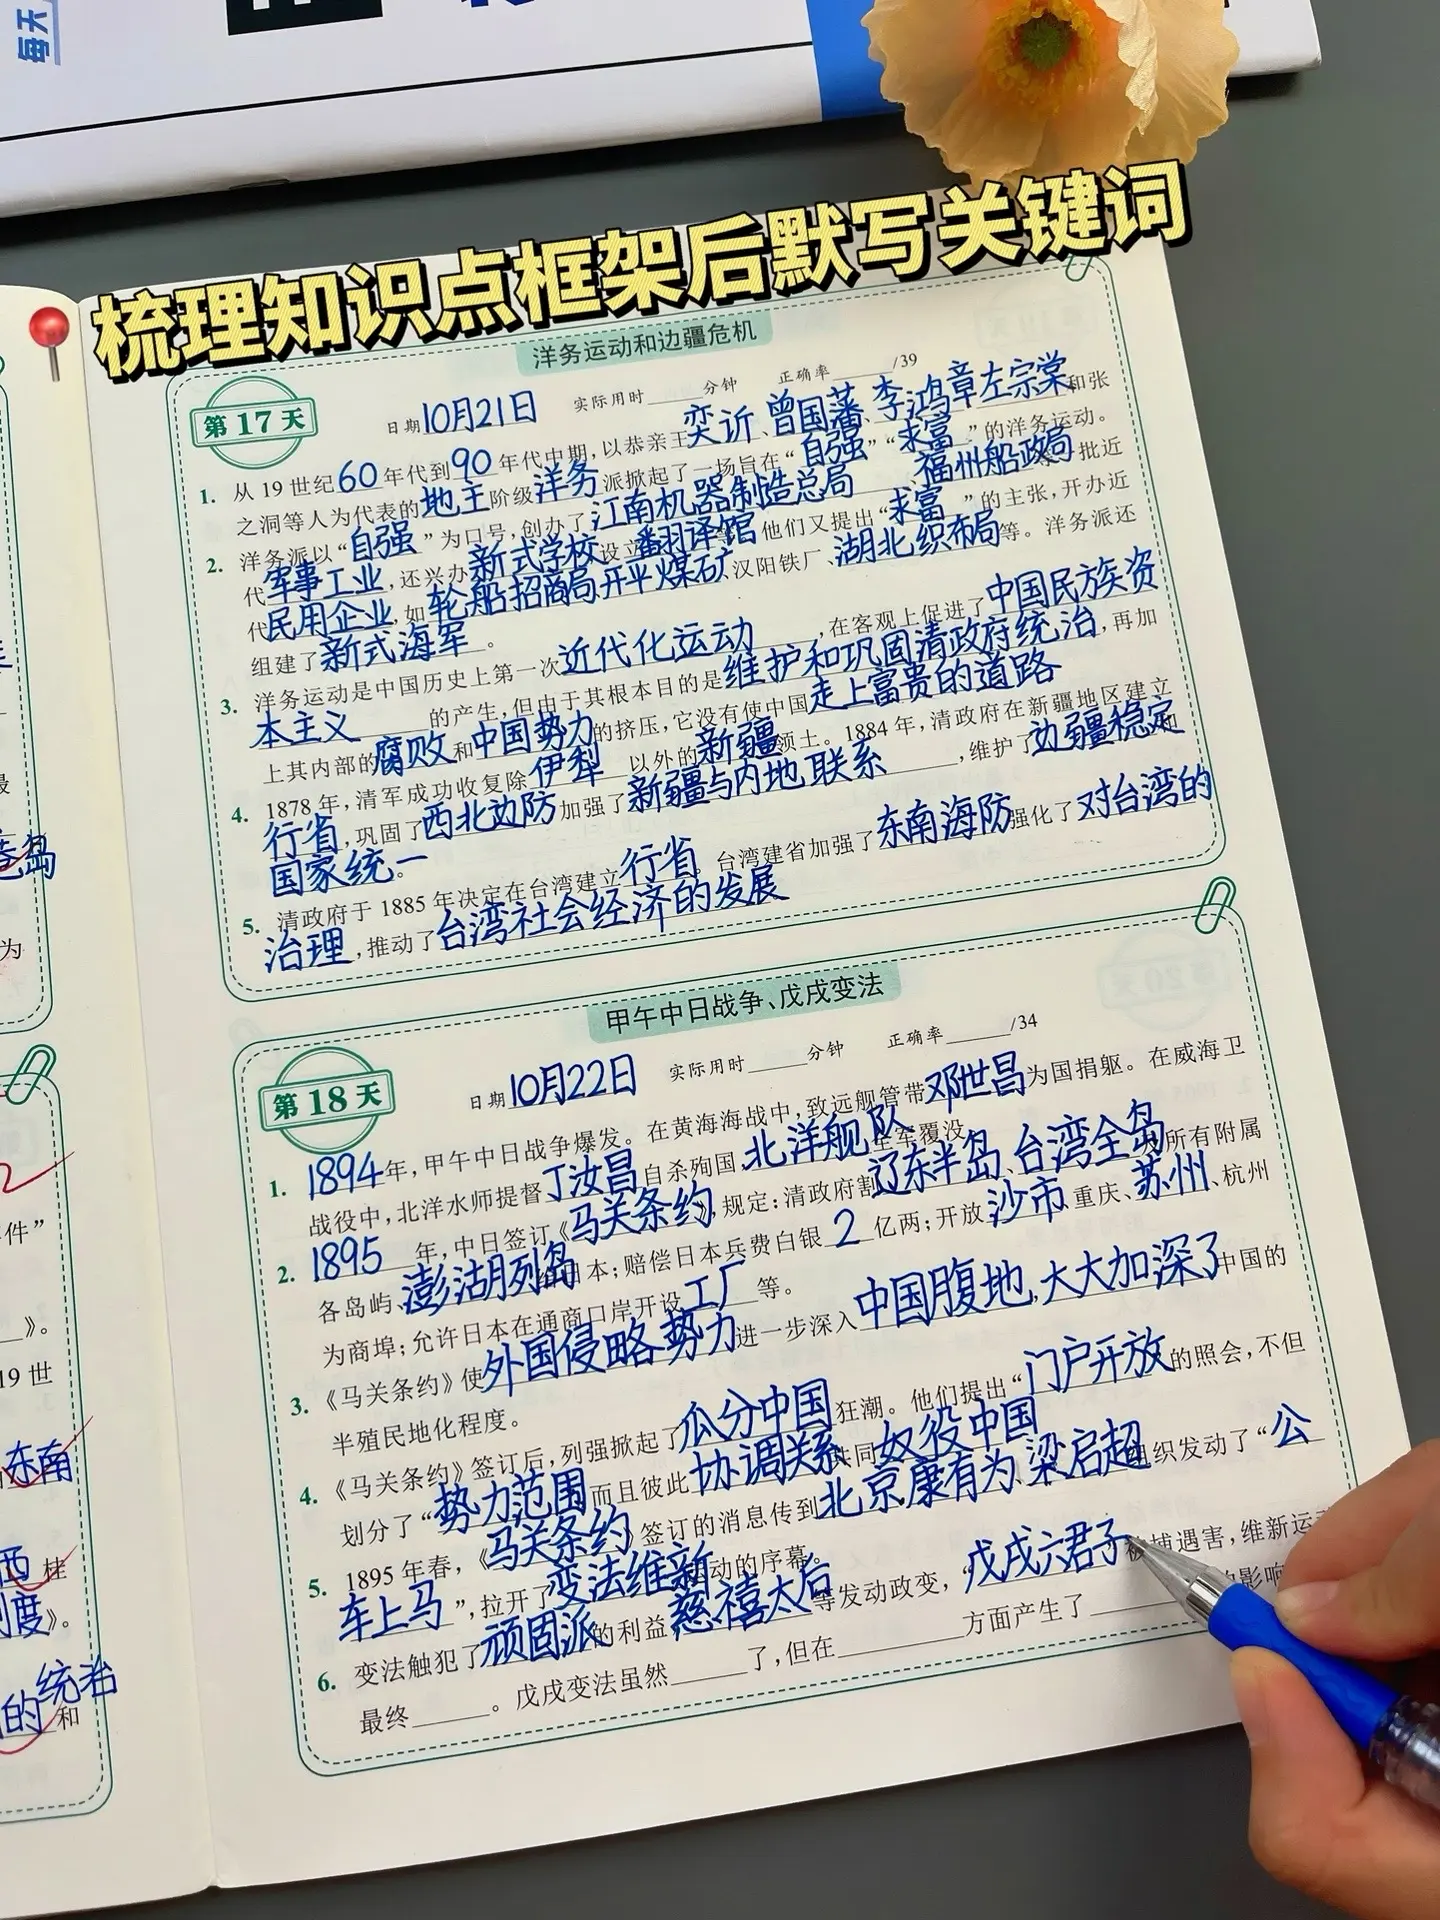 每天
梳理知识点框架后默写关键词
洋务运动和边疆危机
第17天
日期10月21日 实际用时____分钟 正确率____/39
1. 从19世纪60年代到90年代中期,以恭亲王奕䜣、曾国藩、李鸿章左宗棠和张
之洞等人为代表的地主阶级洋务派掀起了一场旨在“自强”“求富”的洋务运动。
2. 洋务派以“自强”为口号,创办了江南机器制造总局、福州船政局 批近
代军事工业,还兴办新式学校设立翻译馆 他们又提出“求富”的主张,开办近
代民用企业,如轮船招商局、开平煤矿、汉阳铁厂、湖北织布局等。洋务派还
组建了新式海军。
3. 洋务运动是中国历史上第一次近代化运动,在客观上促进了中国民族资
本主义的产生,但由于其根本目的是维护和巩固清政府统治,再加
上其内部的腐败和中国势力的挤压,它没有使中国走上富贵的道路
4. 1878年,清军成功收复除伊犁以外的新疆领土。1884年,清政府在新疆地区建立
行省,巩固了西北边防加强了新疆与内地联系,维护了边疆稳定和
国家统一。
5. 清政府于1885年决定在台湾建立行省。台湾建省加强了东南海防强化了对台湾的
治理,推动了台湾社会经济的发展
甲午中日战争、戊戌变法
第18天
日期10月22日 实际用时____分钟 正确率____/34
1. 1894年,甲午中日战争爆发。在黄海海战中,致远舰管带邓世昌为国捐躯。在威海卫
战役中,北洋水师提督丁汝昌自杀殉国,北洋舰队全军覆没
2. 1895年,中日签订《马关条约》,规定:清政府割辽东半岛、台湾全岛及所有附属
各岛屿、澎湖列岛给日本;赔偿日本兵费白银2亿两;开放沙市、重庆、苏州、杭州
为商埠;允许日本在通商口岸开设工厂等。
3. 《马关条约》使外国侵略势力进一步深入中国腹地,大大加深了中国的
半殖民地化程度。
4. 《马关条约》签订后,列强掀起了瓜分中国狂潮。他们提出“门户开放的照会,不但
划分了“势力范围而且彼此协调关系共同奴役中国
5. 1895年春,《马关条约》签订的消息传到北京康有为、梁启超组织发动了“公
车上马”,拉开了变法维新运动的序幕。
6. 变法触犯了顽固派的利益慈禧太后等发动政变,“戊戌六君子”被捕遇害,维新运
最终____。戊戌变法虽然____了,但在____方面产生了____的影响
港岛
为
件”
》。
19世
东南
西 桂
制度》。
的统治
和